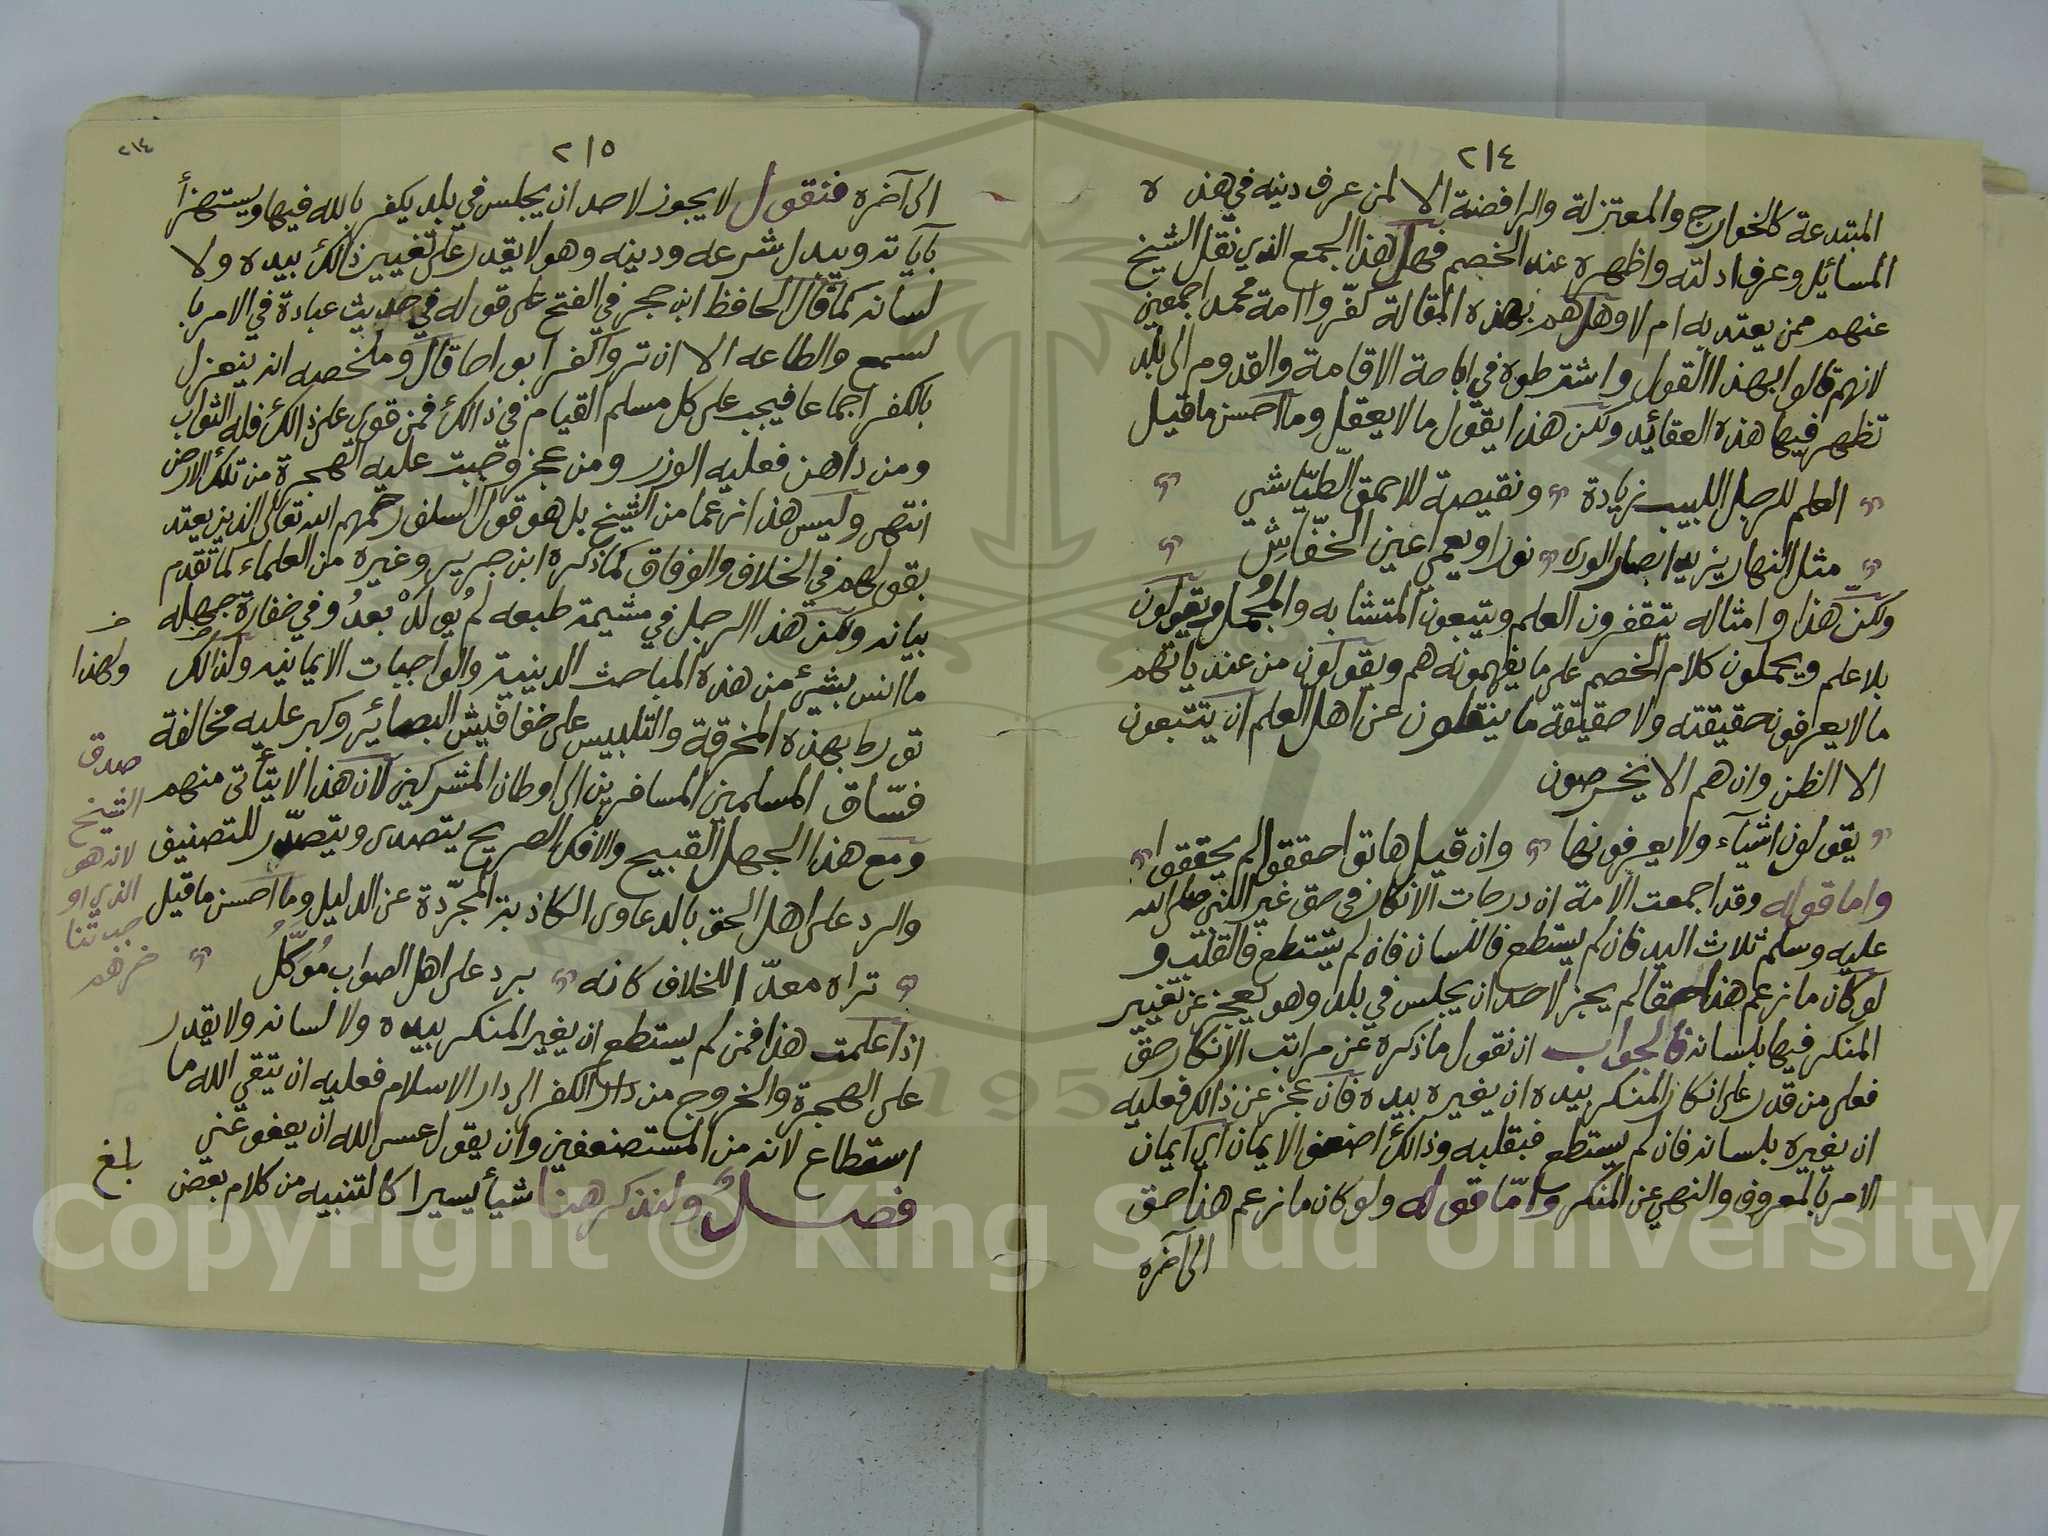 ٢١٤
المبتدعة كالخوارج والمعتزلة والرافضة الا لمن عرف دينه في هذه
المسائل وعرف ادلته واظهره عند الخصم فهل هذا الجمع الذي نقل الشيخ
عنهم ممن يعتد به ام لا وهل هم بهذه المقالة كفّروا امة محمد اجمعين
لانهم قالوا بهذا القول واشترطوه في اباحة الاقامة والقدوم الى بلد
تظهر فيها هذه العقائد ولكن هذا يقول ما لا يعقل وما احسن ما قيل
العلم للرجل اللبيب زيادة ونقيصة للاحمق الطيّاشي
مثل النهار يزيد ابصار الورى نورا ويعمي اعين الخفّاش
ولكن هذا وامثاله يتقفرون العلم ويتبعون المتشابه والمُجمل ويقولون
بلا علم ويحملون كلام الخصم على ما يفهمونه هم ويقولون من عندياتهم
ما لا يعرفون حقيقته ولا حقيقة ما ينقلون عن اهل العلم ان يتبعون
الا الظن وان هم الا يخرصون
يقولون اشيآء ولا يعرفونها وان قيل هاتوا حققوا لم يحققوا
واما قوله وقد اجمعت الامة ان درجات الانكار في حق غير النبي صلى الله
عليه وسلم ثلاث اليد فان لم يستطع فاللسان فان لم يستطع فالقلب و
لو كان ما زعم هذا حقا لم يجز لاحد ان يجلس في بلد وهو يعجز عن تغيير
المنكر فيها بلسانه فالجواب ان نقول ما ذكره عن مراتب الانكار حق
فعلى من قدر على انكار المنكر بيده ان يغيره بيده فان عجز عن ذالك فعليه
ان يغيره بلسانه فان لم يستطع فبقلبه وذالك اضعف الايمان اي ايمان
الامر بالمعروف والنهي عن المنكر وامّا قوله ولو كان ما زعم هذا حق
الى آخره
٢١٥
٢١٤
الى آخره فنقول لا يجوز لاحد ان يجلس في بلد يكفر بالله فيها ويستهزأ
بآياته ويبدل شرعه ودينه وهو لا يقدر على تغيير ذالك بيده ولا
لسانه كما قال الحافظ ابن حجر في الفتح على قوله في حديث عبادة في الامر با
لسمع والطاعه الا ان تروا كفرا بواحا قال وملخصه انه ينعزل
بالكفر اجماعا فيجب على كل مسلم القيام في ذالك فمن قوي على ذالك فله الثواب
ومن داهن فعليه الوزر ومن عجز وجبت عليه الهجرة من تلك الارض
انتهى وليس هذا زعما من الشيخ بل هو قول السلف رحمهم الله تعالى الذين يعتد
بقولهم في الخلاف والوفاق كما ذكره ابن جرير وغيره من العلماء كما تقدم
بيانه ولكن هذا الرجل في مشيمة طبعه لم يولدْ بعدُ وفي خفارة جهله
ما انس بشيء من هذه المباحث الدينية والواجبات الايمانيه وكذالك
ولهذا
تورط بهذه المخرقة والتلبيس على خفافيش البصائر وكبر عليه مخالفة
فسّاق المسلمين المسافرين الى اوطان المشركين لان هذا لا يتأتى منهم
ومع هذا الجهل القبيح والافك الصريح يتصدى ويتصدّر للتصنيف
والرد على اهل الحق بالدعاوى الكاذبة المجرّدة عن الدليل وما احسن ما قيل
صدق
الشيخ
لانه هو
الذي او
ضرهم
تراه معدّا للخلاف كانه برد على اهل الصواب مُوَكّلُ
اذا علمت هذا فمن لم يستطع ان يغير المنكر بيده ولا لسانه ولا يقدر
على الهجرة والخروج من دار الكفر الى دار الاسلام فعليه ان يتقي الله ما
استطاع لانه من المستضعفين وان يقول عسى الله ان يعفو عني
بلغ
فصل ولنذكر هنا شيأ يسيرا كالتنبيه من كلام بعض
Copyright © King Saud University